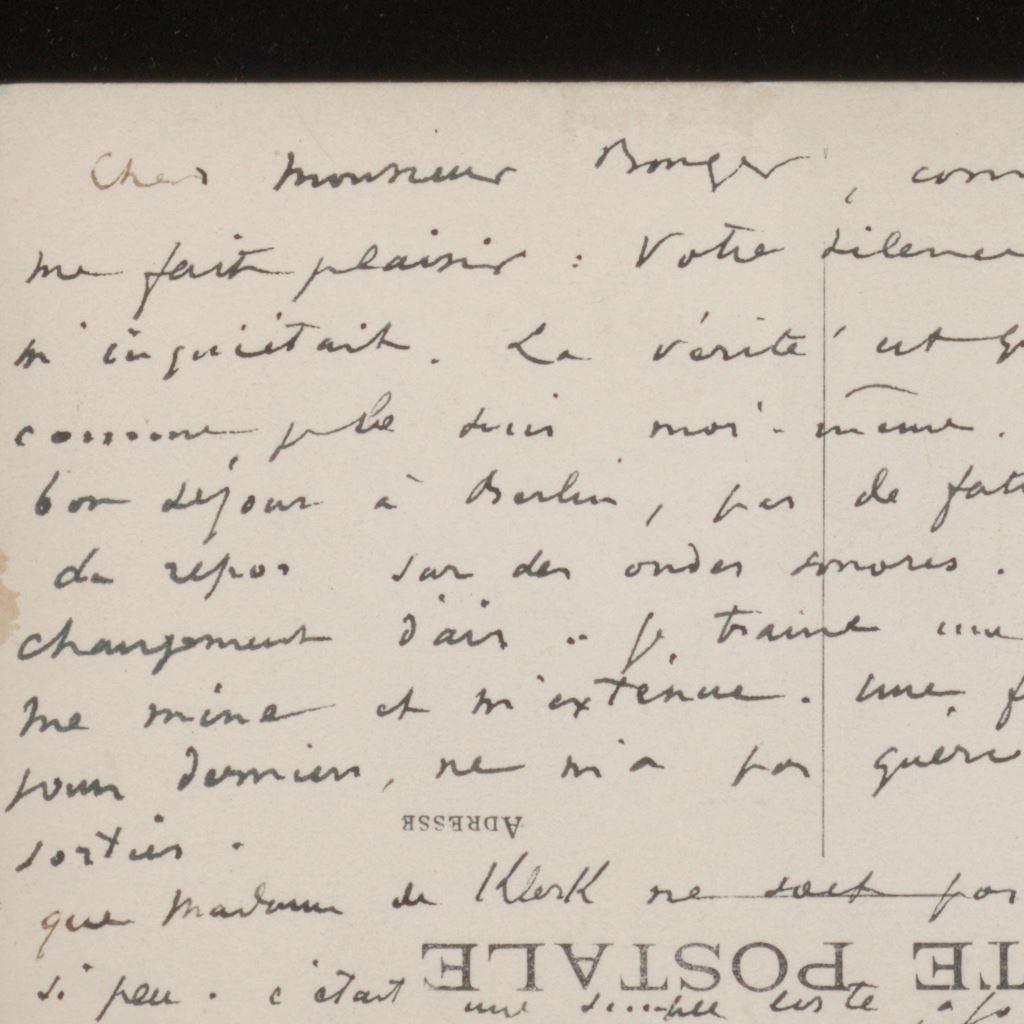 Cher Monsieur Bonger, com
me fait plaisir : Votre silence
m'inquiétait. La vérité est q
comme je le suis moi-même.
bon séjour à Berlin, pas de fati
du repos sur des ondes sonores.
changement d'air .. je traine une
me mine et m'exténue. une f
jours derniers, ne m'a pas guéri
sorties.
ADRESSE
que Madame de Klerk ne soit pas
TE POSTALE
si peu. c'était une simple carte, ajo